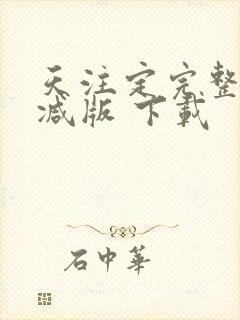 天注定完整
减版 下載
石中華